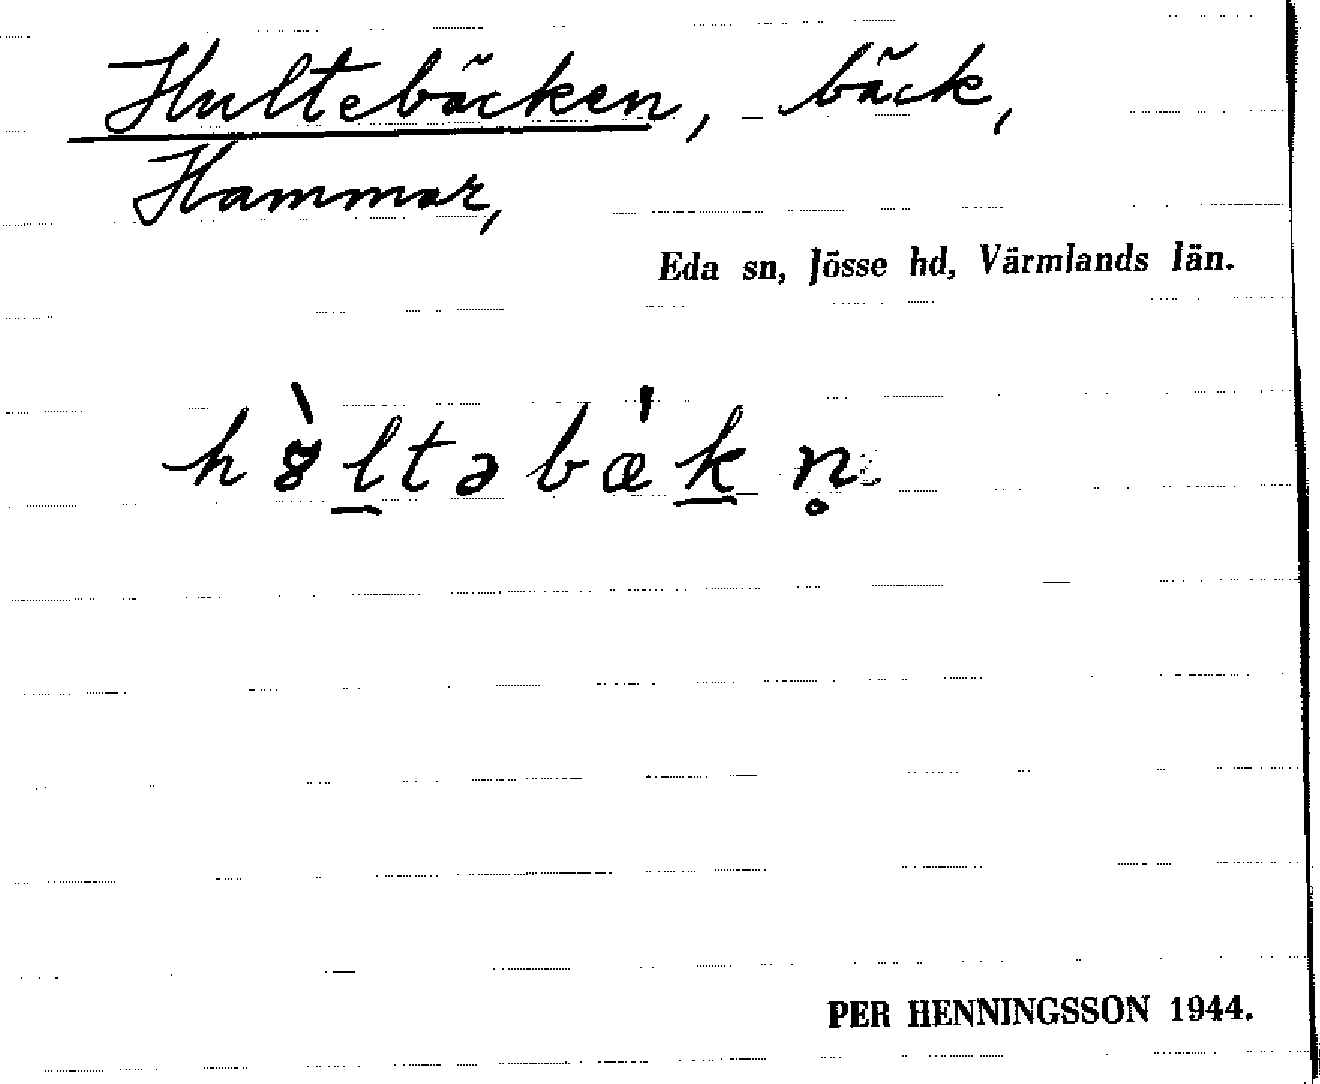 Hultebäcken, bäck,
Hammar,
Eda sn, Jösse hd, Värmlands län.
h ȣ̀ l̲ t ə b æ̍ k̲ n̥
PER HENNINGSSON 1944.